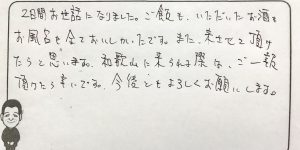 2日間お世話になりました。ご飯も、いただいたお酒も
お風呂も全ておいしかったです。また、来させて頂け
たらと思います。和歌山に来られる際は、ご一報
頂けたら幸いです。今後ともよろしくお願いします。